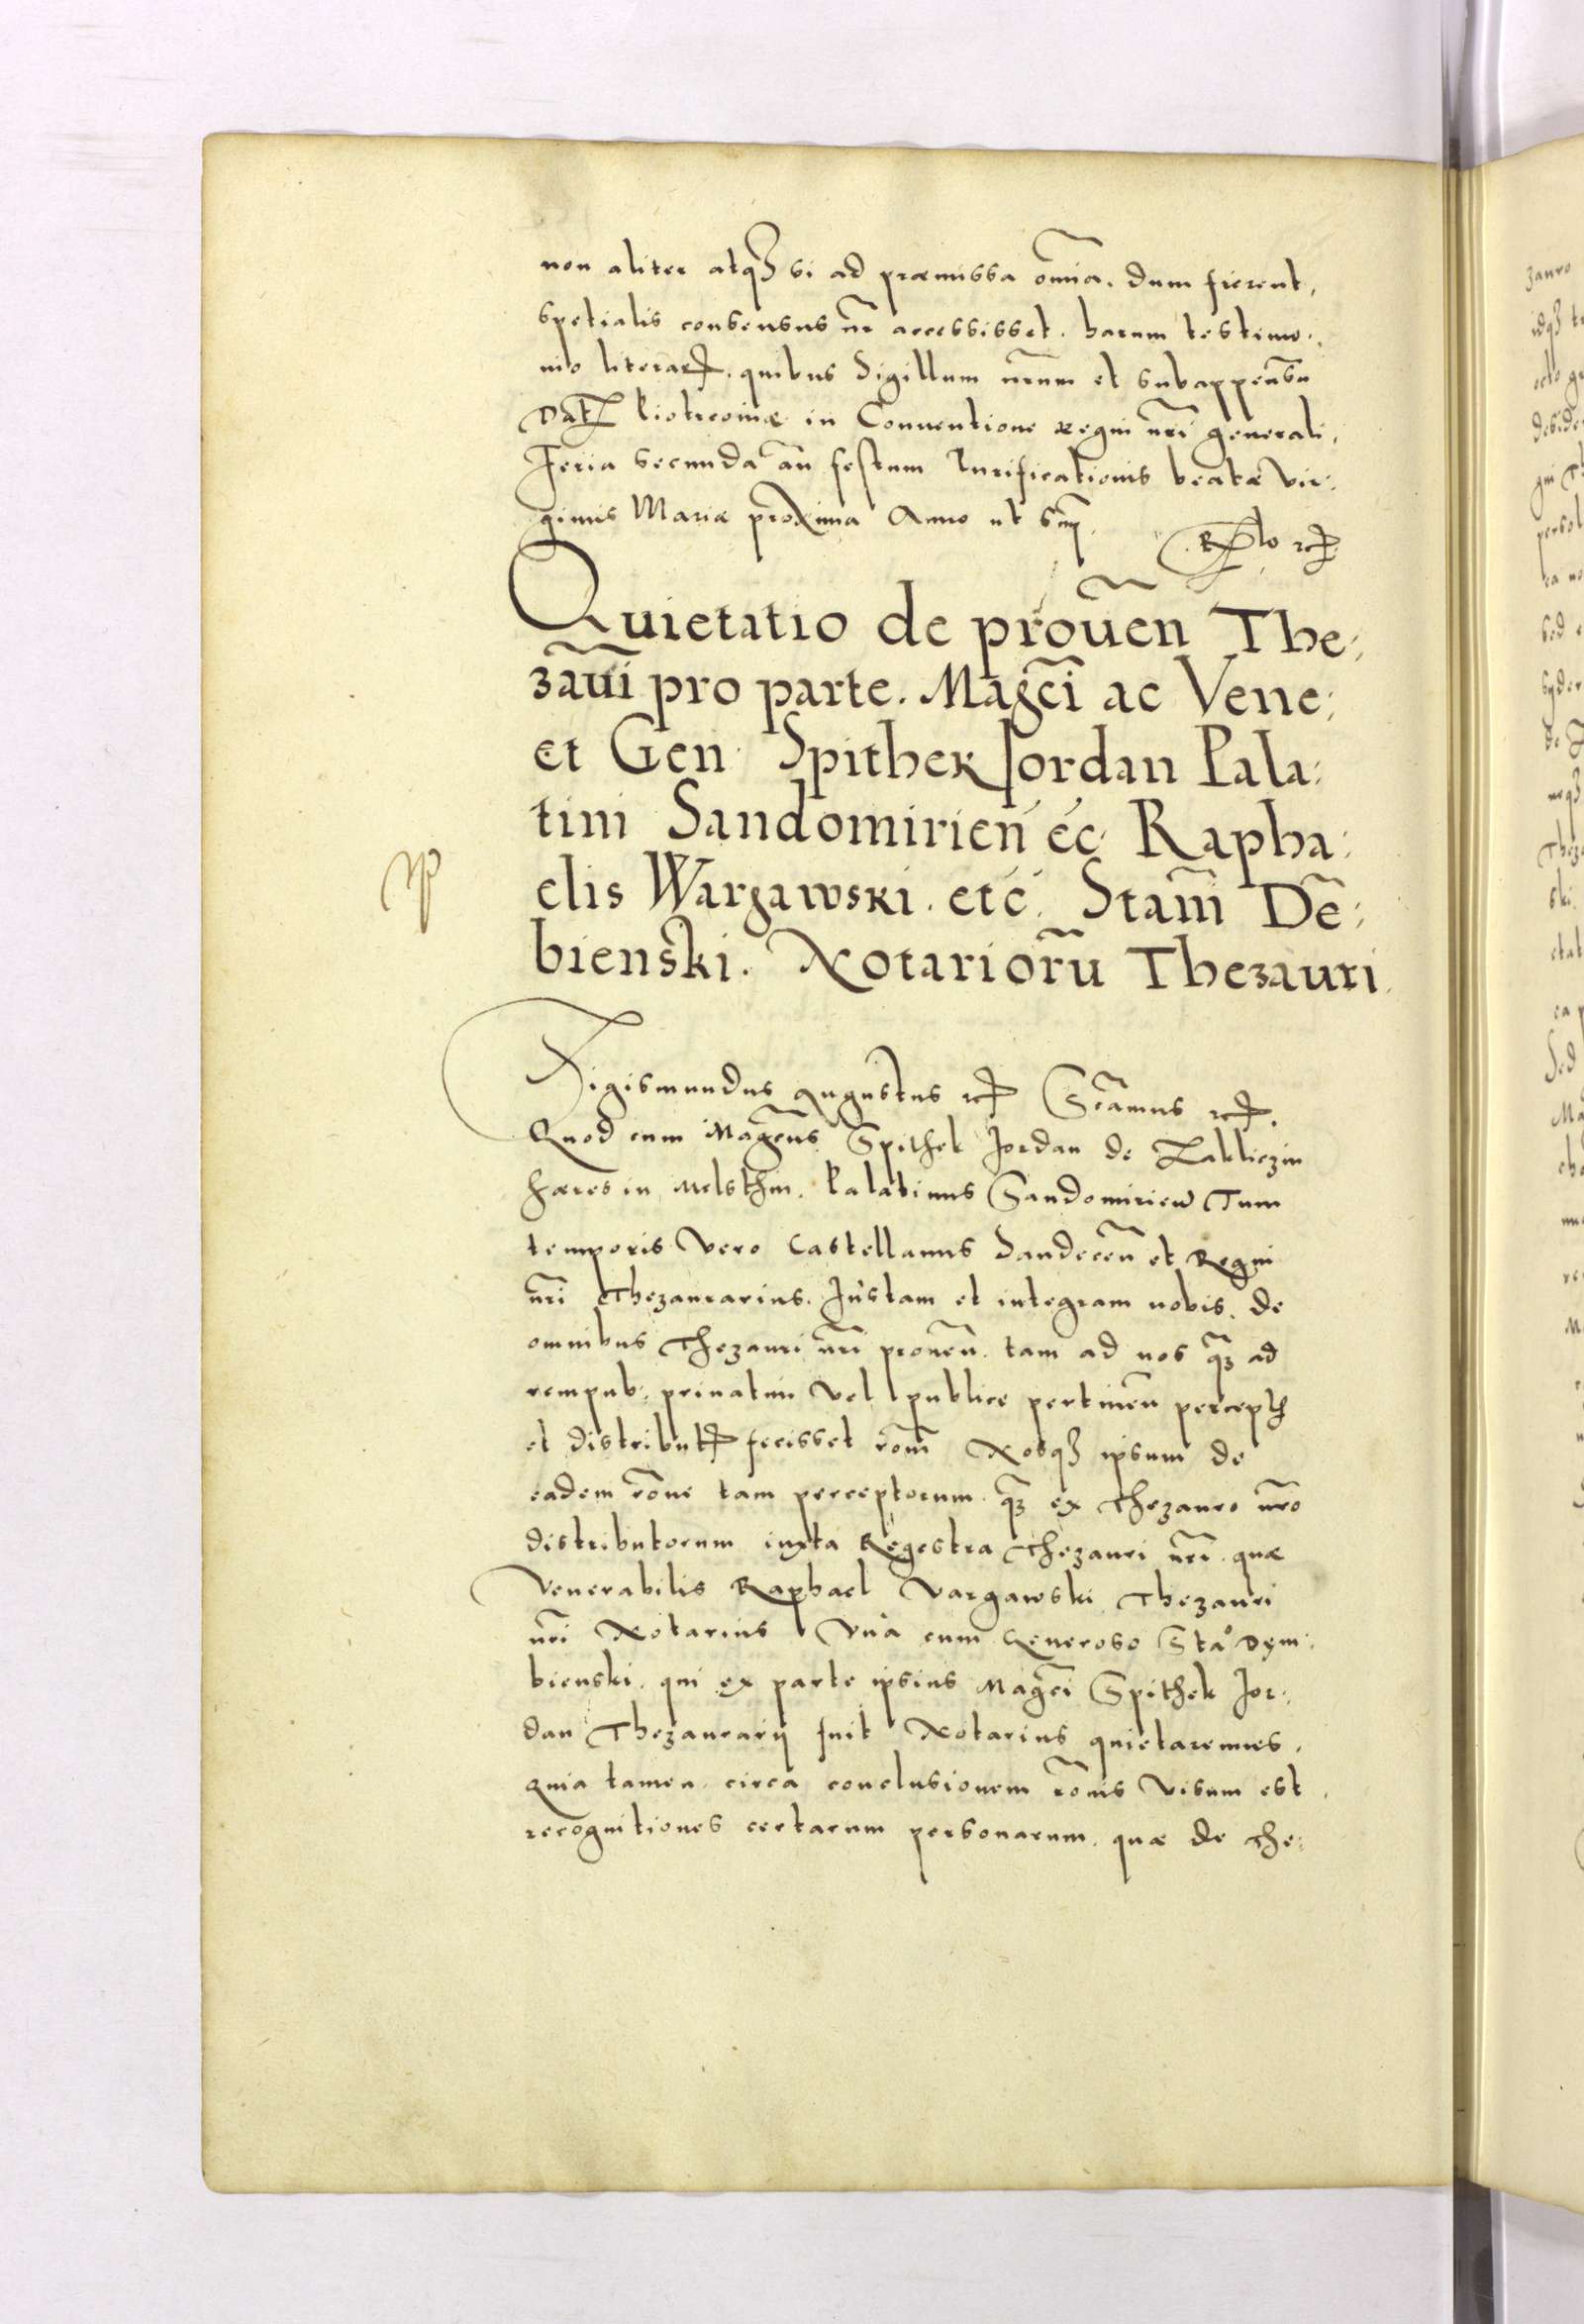 non aliter atq3 si ad præmissa om̃ia. dum fierent,
spetialis consensus nr̃ accessisset. harum testimo:
nio literar. quibus Sigillum nr̃um est subappensũ
Dat Piotrcoviæ in Conventione regni nr̃i generali,
Feria secunda añ festum Purificationis beatæ Vir:
ginis Mariæ proxima Anno ut s.
Rlo etc.
Quietatio de prouẽn The:
zãuri pro parte. Magc̃i ac Vene:
et Gen Spithek Jordan Pala:
tini Sandomirień ec Rapha:
elis Wargawski. etc. Stañi Dẽ:
bienski. Notariorũ Thezauri.
Sigismundus Augustus etc Sc̃amus etc.
Quod cum Magc̃us Spithek Jordan de Zakliczin
hæres in Melsthin. Palatinus Sandomirieñ Tum
temporis vero Castellanus Sandeceñ et Regni
nr̃i Thezaurarius. Justam et integram nobis. de
omnibus Thezauri nr̃i proueñ. tam ad nos q̃3 ad
rempub: priuatim vel publice pertineñ percept
et distribut fecisset rõm Nosq3 ipsum de
eadem rõne tam perceptorum. q̃3 ex Thezauro nr̃o
distributorum iuxta Regestra Thezauri nr̃i. quæ
Venerabilis Raphael Vargawski Thezauri
nr̃i Notarius Vna cum Generoso Stão Dęm:
bienski. qui ex parte ipsius Magc̃i Spithek Jor:
dan Thezaurarij fuit Notarius quietaremus.
Quia tamen. circa conclusionem rõnis visum est.
recognitiones certarum personarum. quæ de The: